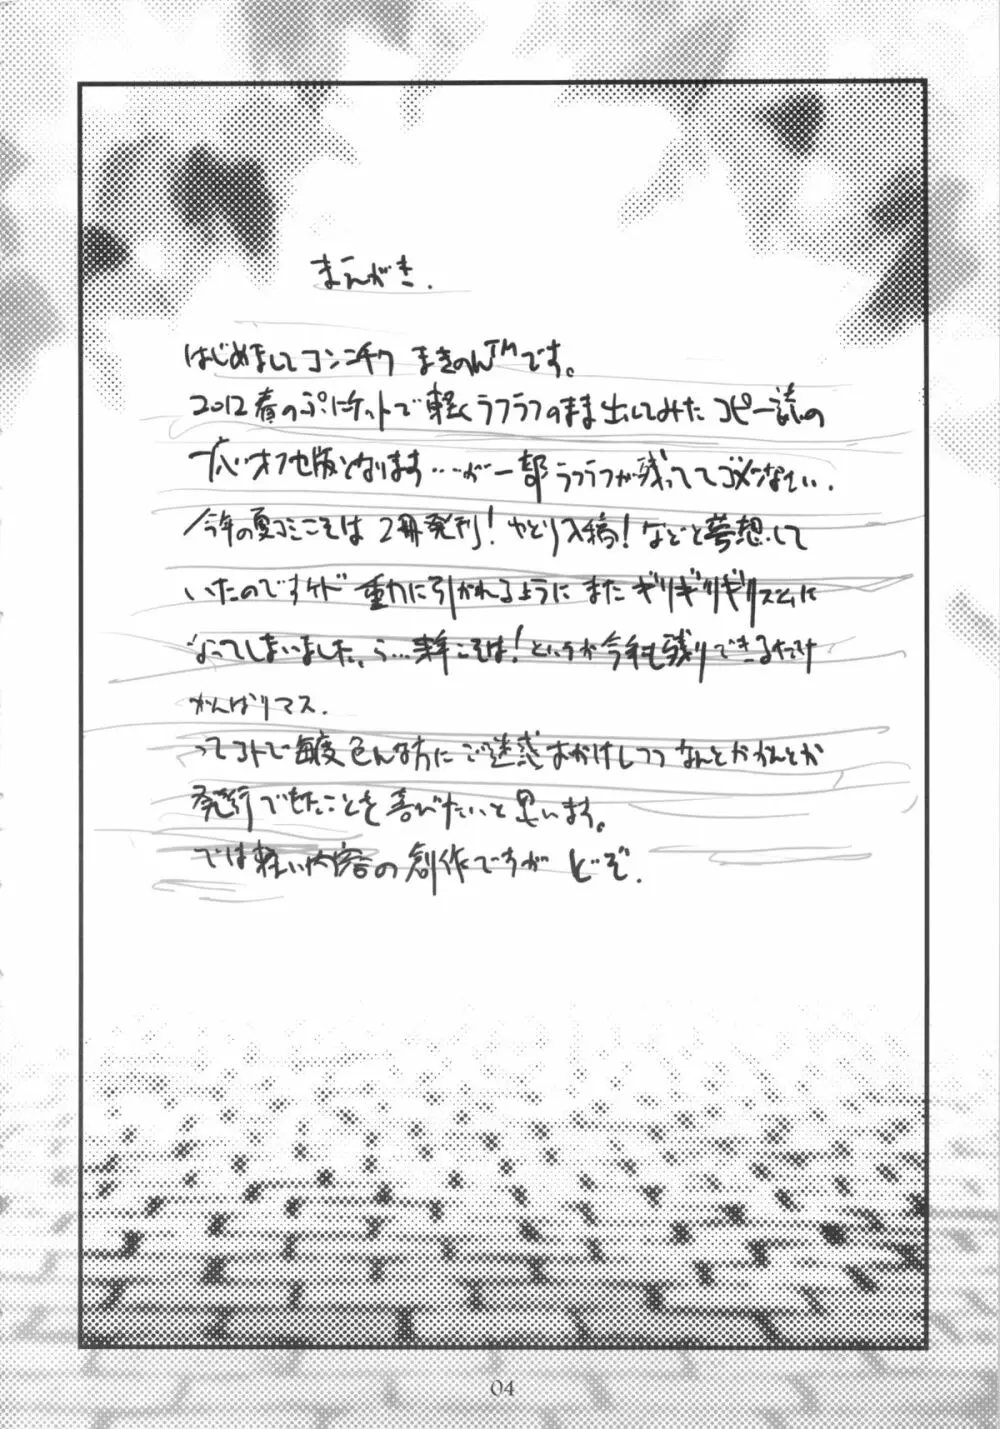 まえがき.
はじめましてコンニチワ まきのんTMです。
2012春のぷにケットで軽くラフラフのまま出してみたコピー誌の
オフセ版となります……が一部ラフラフが残っててゴメンなさい.
今年の夏コミこそは2冊発刊! やとり入稿! などと夢想して
いたのですけド 重力に引かれるように またギリギリギリズムに
なってしまいました。ら…来年こそは! というか今年も残りできるだけ
がんばりマス.
ってコトで毎度色んな方にご迷惑おかけしつつ なんとかかんとか
発行できたことを喜びたいと思います。
では軽い内容の創作ですが どぞ.
04